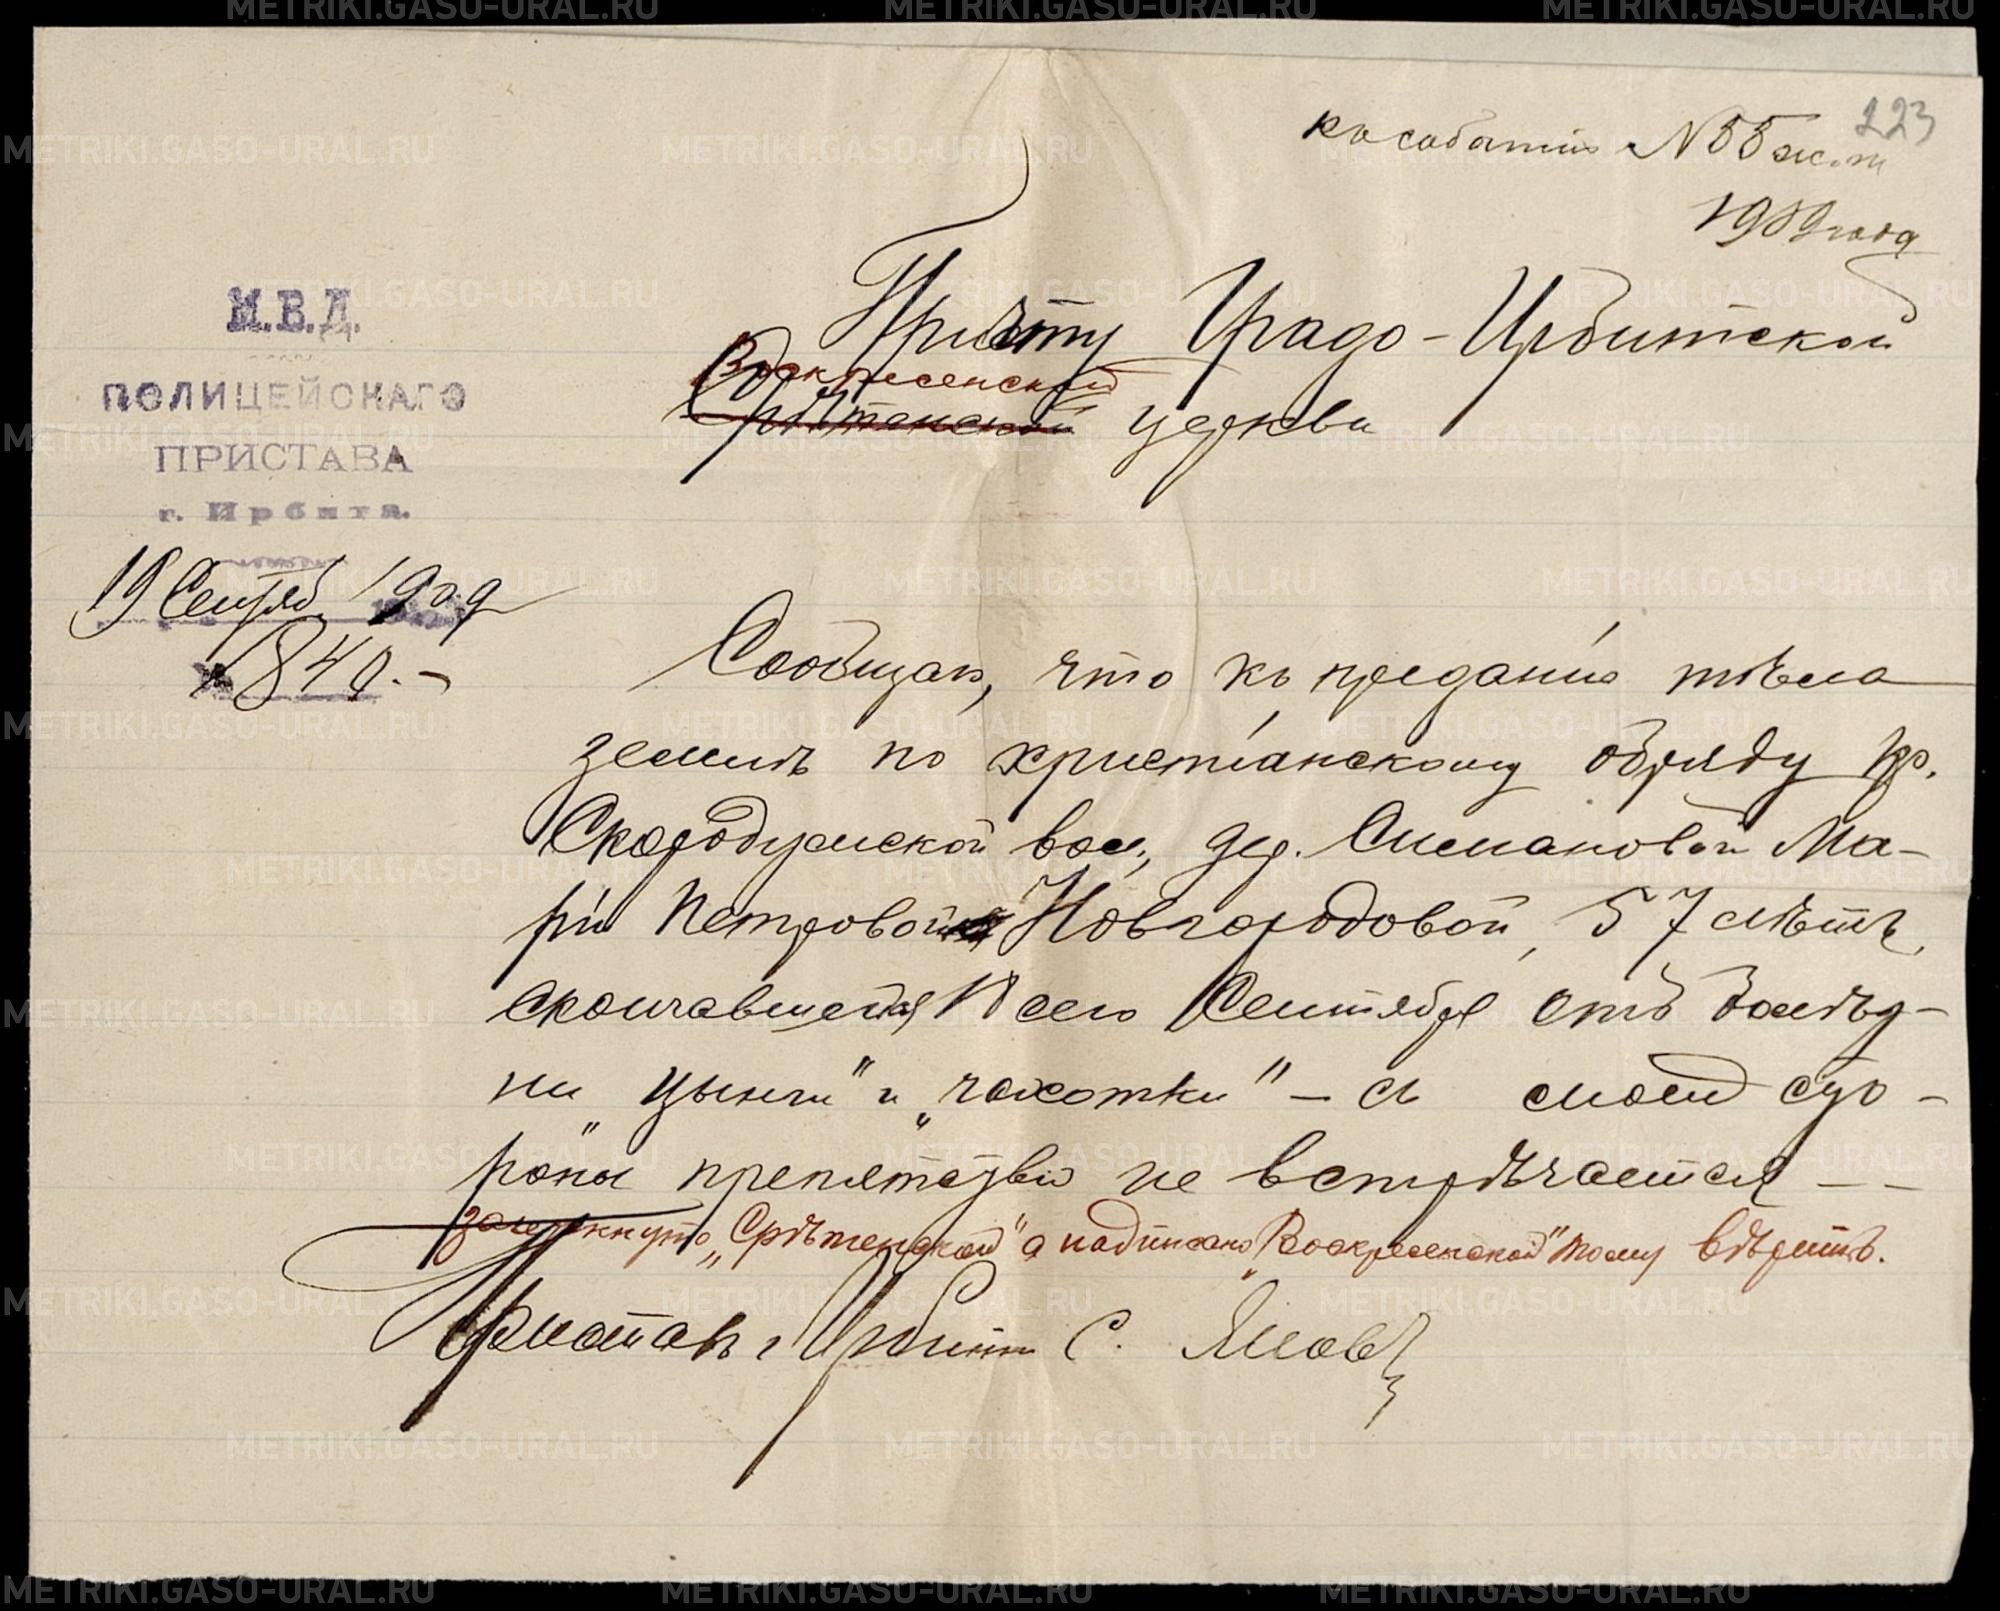 223
къ событію № 55 ж. п.
1909 года
М.В.Д.
ПОЛИЦЕЙСКАГО
ПРИСТАВА
г. Ирбита.
19 Сентяб 1909
№ 840.–
Причту Градо-Ирбитской
Воскресенской
Срѣтенской церкви
Сообщаю, что къ преданію тѣла
землѣ по христіанскому обряду кр.
Скородумской вол., дер. Симановой Ма-
ріи Петровой Новгородовой, 57 лѣтъ,
скончавшейся 18 сего Сентября отъ болѣз-
ни „цынги" и „чахотки" – съ моей сто-
роны препятствій не встрѣчается – –
зачеркнуто „Срѣтенской" а надписано „Воскресенской" тому вѣрить.
Приставъ г. Ирбита С.
METRIKI.GASO-URAL.RU